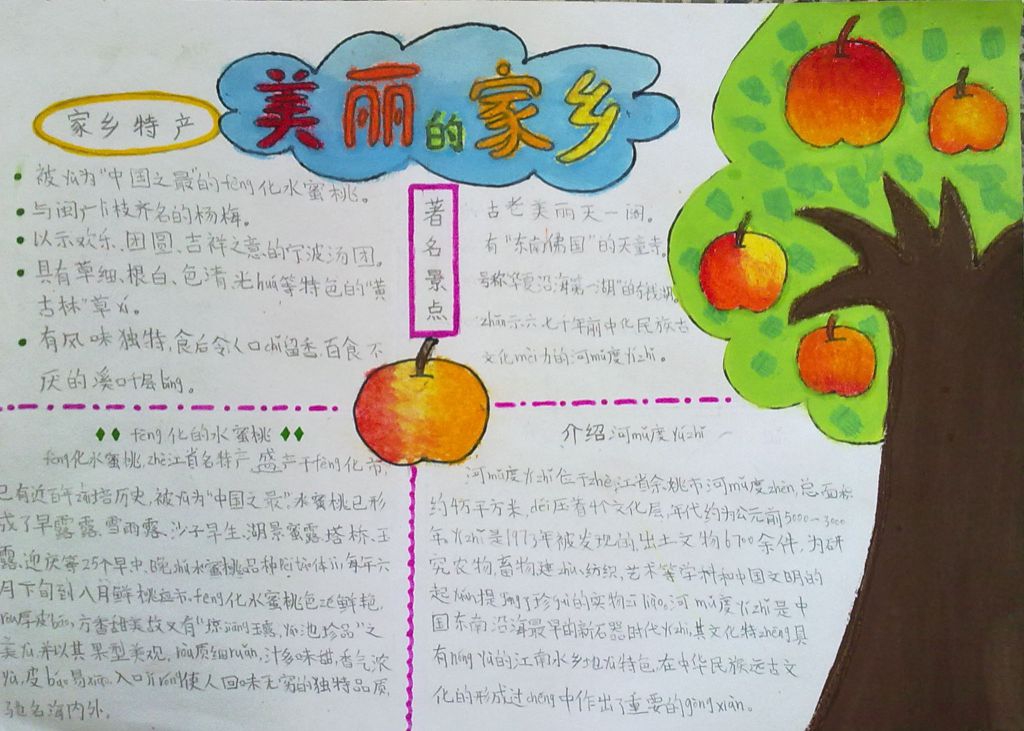 美丽的家乡
家乡特产
被yù为“中国之最”的fèng化水蜜桃。
与闽广lì枝齐名的杨梅。
以示欢乐、团圆、吉祥之意的宁波汤团。
具有草细、根白、色清、光huá等特色的“黄
古林”草xí。
有风味独特,食后令人口chǐ留香,百食不
厌的溪口千层bǐng。
著名景点
古老美丽天一阁。
有“东南佛国”的天童寺。
号称“华夏沿海第一湖”的
zhǎn示六七千年前中化民族古
文化mèi力的河mǔ度yí zhǐ。
fèng化的水蜜桃
fèng化水蜜桃,zhè江省名特产,盛产于fèng化市,
已有近百年 培历史,被yù为“中国之最”,水蜜桃已形
成了早露露、雪雨露、沙子早生、湖景蜜露、塔桥、玉
露、迎庆等25个早中、晚 水蜜桃品种 每年六
月下旬到八月鲜桃 市,fèng化水蜜桃色 鲜艳,
方香甜美,故又有“琼jiāng玉露,yáo池珍品”之
美 ,并以其果型美观,ròu质细ruǎn,汁多味甜,香气浓
皮báo易 ,入口 使人回味无穷的独特品质,
驰名海内外。
介绍河mǔ度yí zhǐ
河mǔ度yí zhǐ位于zhè江省余姚市河mǔ度zhèn,总面积
约4万平方米,dié压着4个文化层,年代约为公元前5000-3000
年,yí zhǐ是1973年被发现的,出土文物6700余件,为研
究农物,畜物,建zhù,纺织,艺术等学村和中国文明的
起yuán提 了珍guì的实物 liào。河mǔ度yí zhǐ是中
国东南沿海最早的新石器时代yí zhǐ,其文化特zhēng具
有nóng yù的江南水乡地yù特色,在中华民族远古文
化的形成过chéng中作出了重要的gòng xiàn。